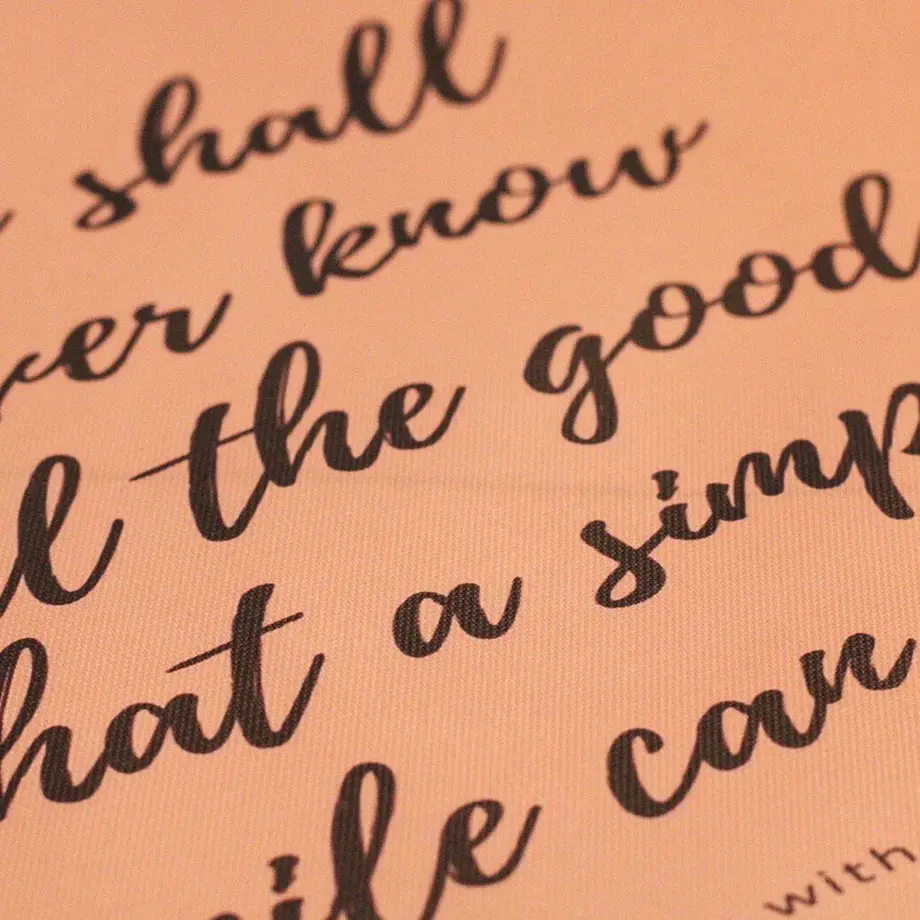 shall
know
the good
hat a simp
can
with